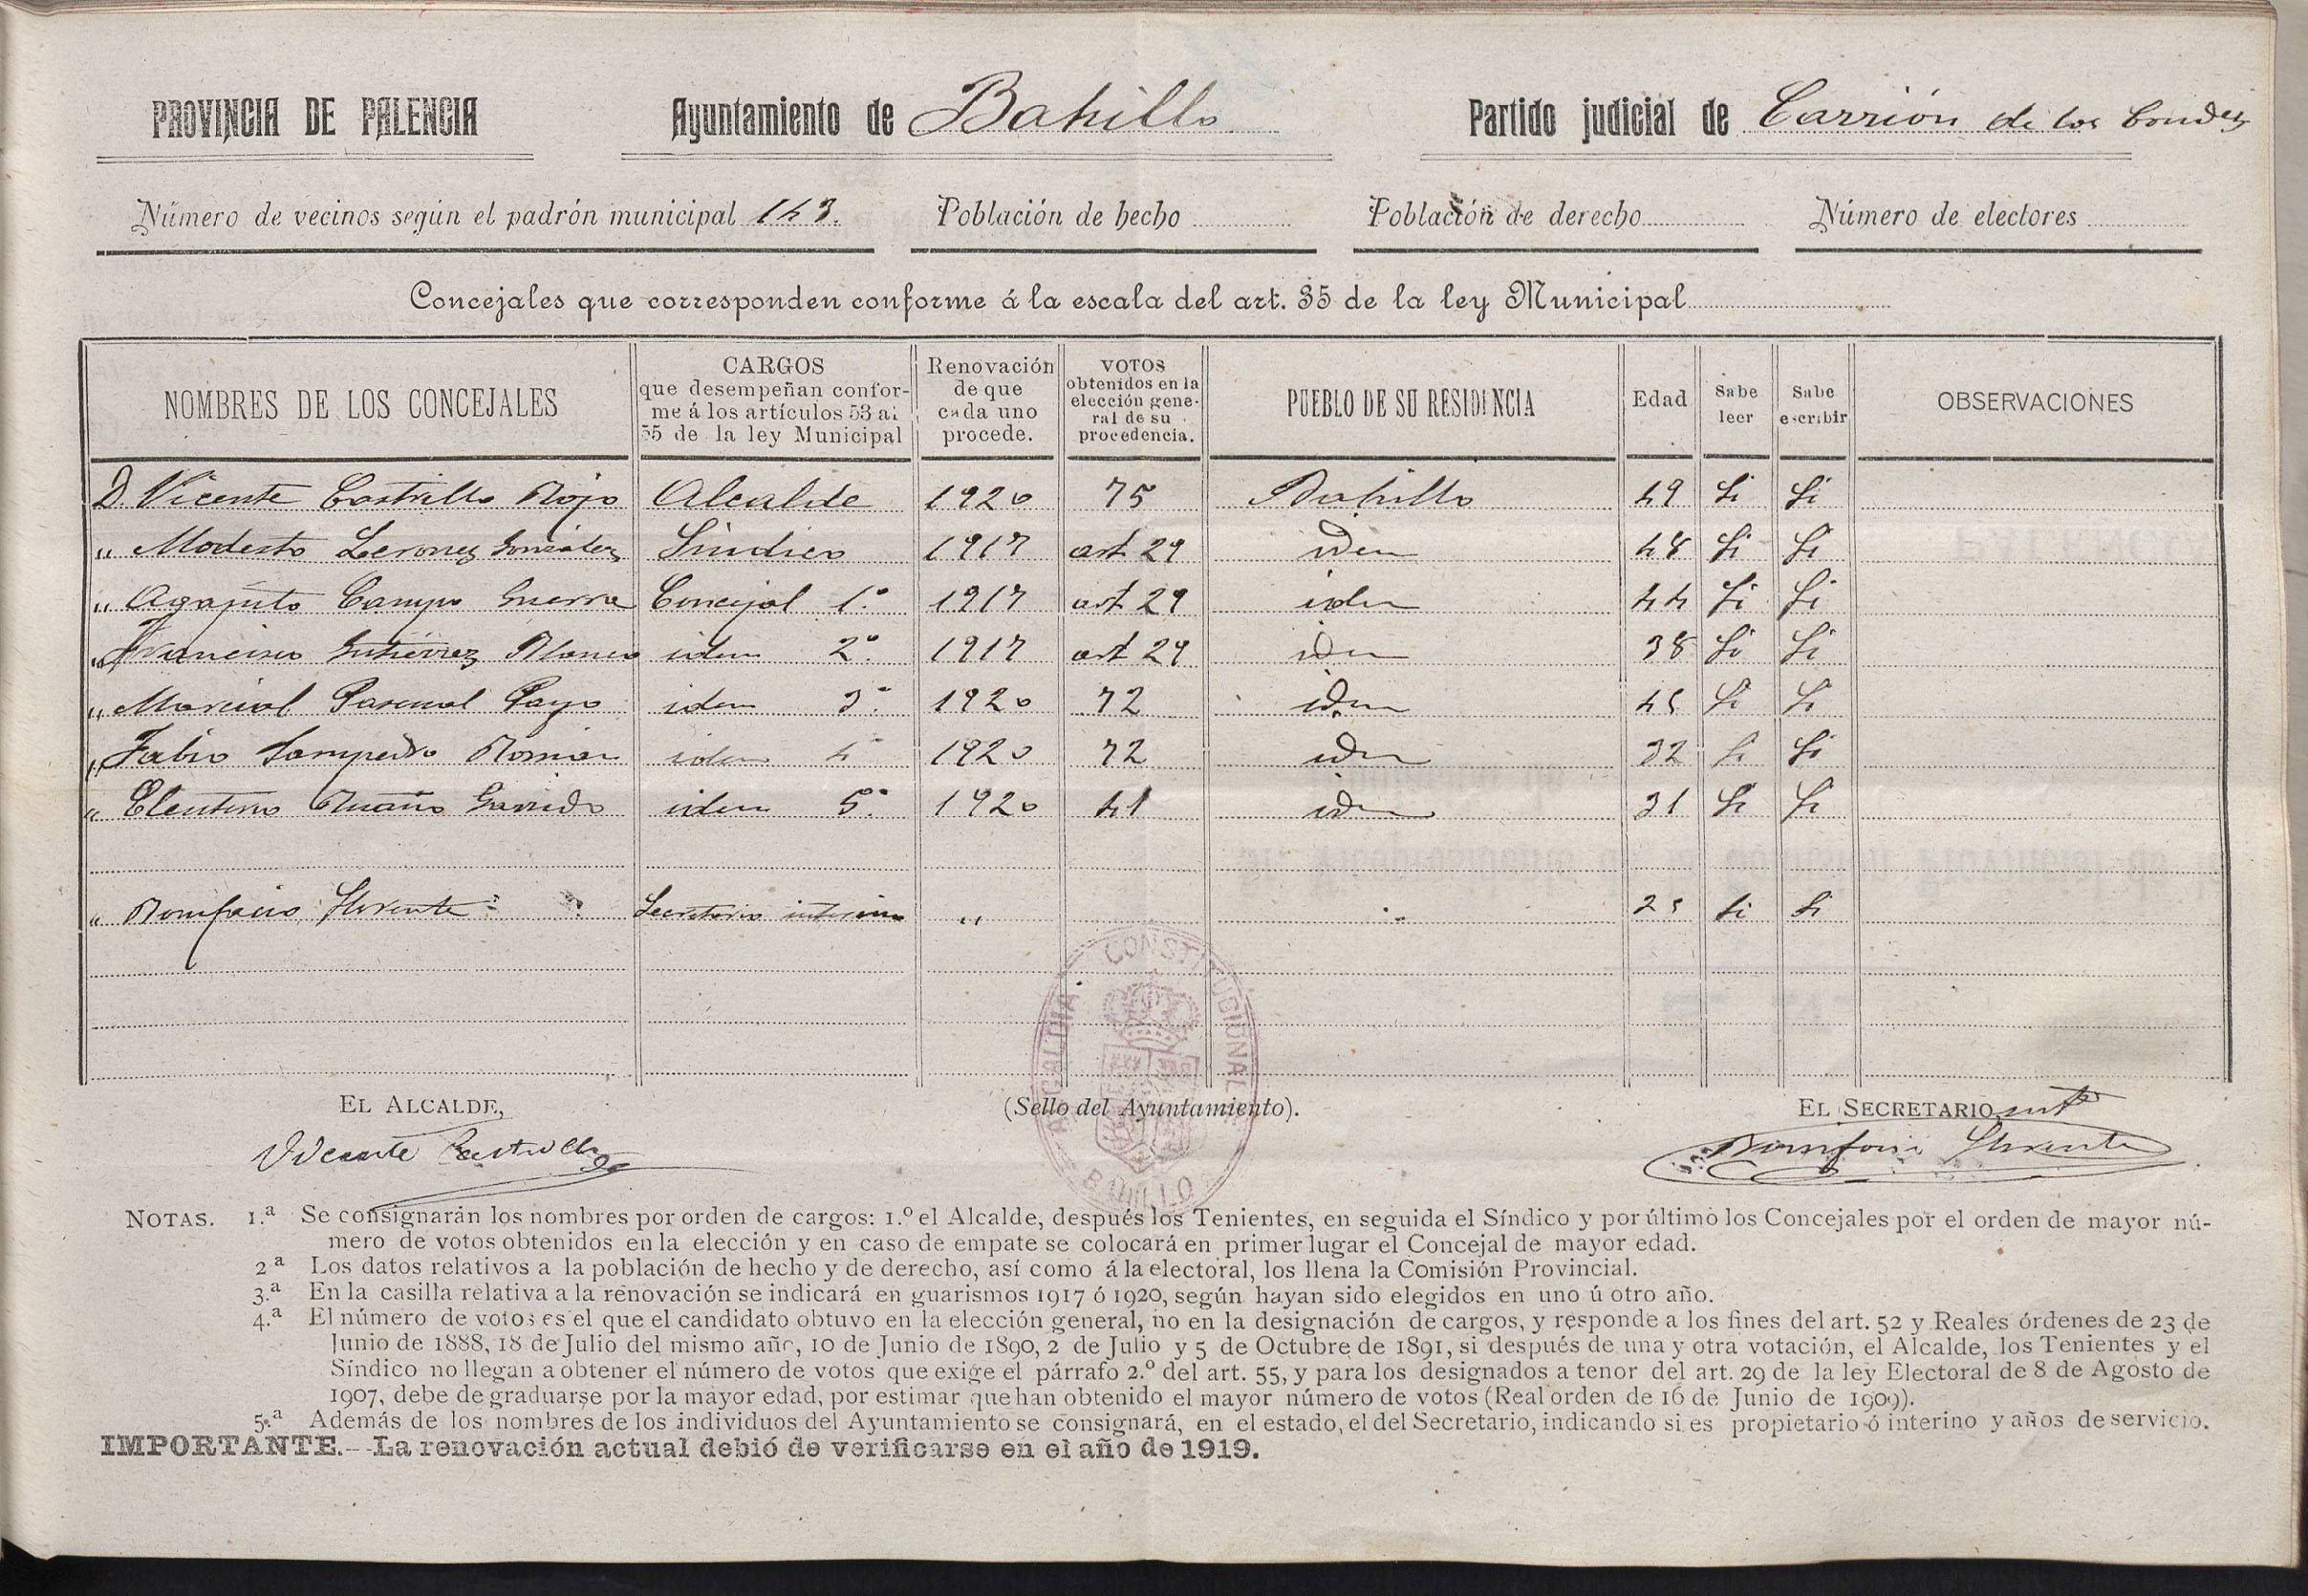 PROVINCIA DE PALENCIA Ayuntamiento de Bahillo Partido judicial de Carrión de los Condes
Número de vecinos según el padrón municipal 143. Población de hecho Población de derecho Número de electores
Concejales que corresponden conforme á la escala del art. 35 de la ley Municipal
NOMBRES DE LOS CONCEJALES
CARGOS
que desempeñan confor-
me á los artículos 53 al
55 de la ley Municipal
Renovación
de que
cada uno
procede.
VOTOS
obtenidos en la
elección gene-
ral de su
procedencia.
PUEBLO DE SU RESIDENCIA
Edad
Sabe
leer
Sabe
escribir
OBSERVACIONES
D. Vicente Castrillo Rojo Alcalde 1920 75 Bahillo 49 Si Si
" Modesto Lerones González Síndico 1917 art 29 idem 48 Si Si
" Agapito Campo Guerra Concejal 1.º 1917 art 29 idem 44 Si Si
" Francisco Gutiérrez Blanco idem 2.º 1917 art 29 idem 38 Si Si
" Marcial Pascual Payo idem 3.º 1920 72 idem 45 Si Si
" Fabio Sampedro Román idem 4º 1920 72 idem 32 Si Si
" Eleuterio Garrido idem 5.º 1920 41 idem 31 Si Si
" Bonifacio Llorente Secretario interino " " 25 Si Si
ALCALDIA CONSTITUCIONAL
BAHILLO
EL ALCALDE, (Sello del Ayuntamiento). EL SECRETARIO, intº
Vicente Castrillo Bonifacio Llorente
NOTAS. 1.ª Se consignarán los nombres por orden de cargos: 1.º el Alcalde, después los Tenientes, en seguida el Síndico y por último los Concejales por el orden de mayor nú-
mero de votos obtenidos en la elección y en caso de empate se colocará en primer lugar el Concejal de mayor edad.
2ª Los datos relativos a la población de hecho y de derecho, así como á la electoral, los llena la Comisión Provincial.
3.ª En la casilla relativa a la renovación se indicará en guarismos 1917 ó 1920, según hayan sido elegidos en uno ú otro año.
4.ª El número de votos es el que el candidato obtuvo en la elección general, no en la designación de cargos, y responde a los fines del art. 52 y Reales órdenes de 23 de
Junio de 1888, 18 de Julio del mismo año, 10 de Junio de 1890, 2 de Julio y 5 de Octubre de 1891, si después de una y otra votación, el Alcalde, los Tenientes y el
Síndico no llegan a obtener el número de votos que exige el párrafo 2.º del art. 55, y para los designados a tenor del art. 29 de la ley Electoral de 8 de Agosto de
1907, debe de graduarse por la mayor edad, por estimar que han obtenido el mayor número de votos (Real orden de 16 de Junio de 1909).
5.ª Además de los nombres de los individuos del Ayuntamiento se consignará, en el estado, el del Secretario, indicando si es propietario ó interino y años de servicio.
IMPORTANTE.—La renovación actual debió de verificarse en el año de 1919.